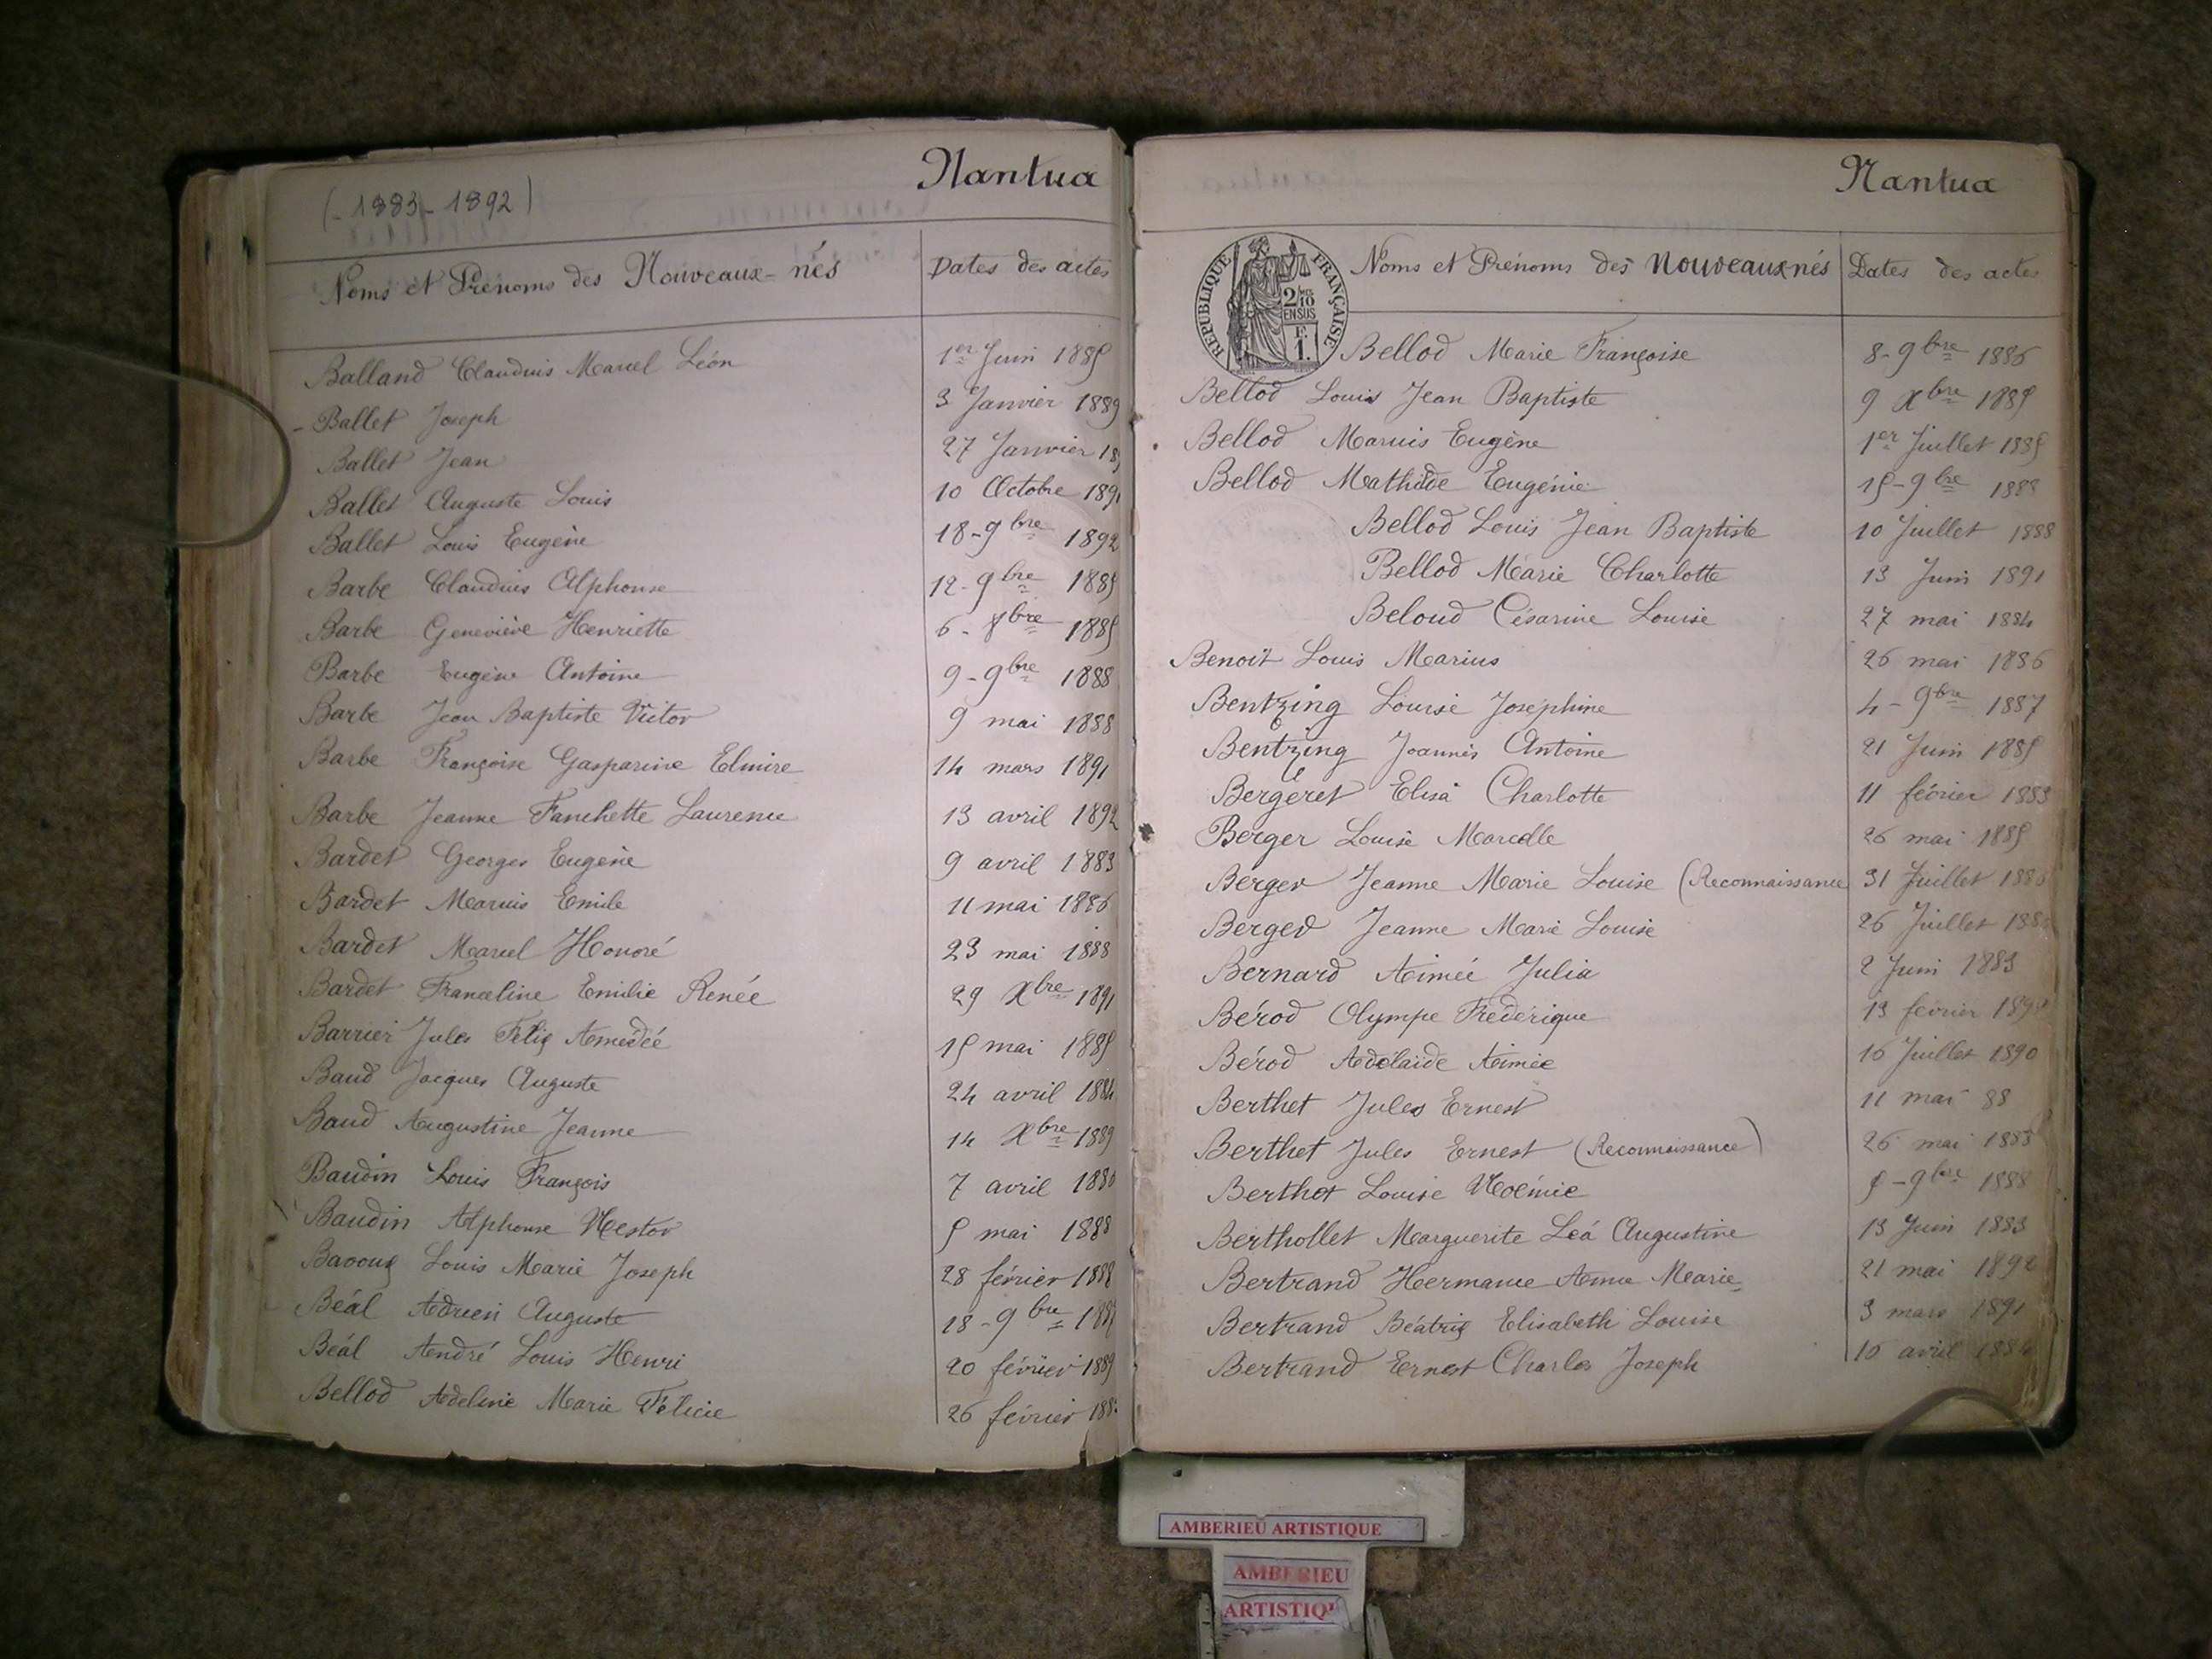 (-1883-1892)
Nantua
Noms et Prénoms des Nouveaux-nés Dates des actes
Balland Claudius Marcel Léon 1er Juin 1885
- Ballet Joseph 3 Janvier 1889
Ballet Jean 27 Janvier
Ballet Auguste Louis 10 Octobre 1891
Ballet Louis Eugène 18-9bre 1892
Barbe Claudius Alphonse 12-9bre 1885
Barbe Geneviève Henriette 6- 1885
Barbe Eugène Antoine 9-9bre 1888
Barbe Jean Baptiste Victor 9 mai 1888
Barbe Françoise Gasparine Elmire 14 mars 1891
Barbe Jeanne Fanchette Laurence 13 avril 1892
Bardet Georges Eugène 9 avril 1883
Bardet Marius Emile 11 mai 1886
Bardet Marcel Honoré 23 mai 1888
Bardet Franceline Emilie Renée 29 Xbre 1891
Barrier Jules Félix Amédée 15 mai 1885
Baud Jacques Auguste 24 avril 1884
Baud Augustine Jeanne 14 Xbre 1889
Baudin Louis François 7 avril
Baudin Alphonse Nestor 5 mai 1888
Louis Marie Joseph 28 février 1888
Béal Adrien Auguste 18-9bre
Béal André Louis Henri 20 février 1889
Bellod Adeline Marie Félicie 26 février
Nantua
Noms et Prénoms des Nouveaux nés Dates des actes
RÉPUBLIQUE FRANÇAISE
2/10
EN SUS
1F.
Bellod Marie Françoise 8-9bre 1886
Bellod Louis Jean Baptiste 9 Xbre 1885
Bellod Marius Eugène 1er Juillet 1885
Bellod Mathilde Eugénie 15-9bre 1888
Bellod Louis Jean Baptiste 10 Juillet 1888
Bellod Marie Charlotte 13 Juin 1891
Beloud Césarine Louise 27 mai 1884
Benoît Louis Marius 26 mai 1886
Bentzing Louise Joséphine 4-9bre 1887
Bentzing Joannès Antoine 21 Juin 1885
Bergeret Elisa Charlotte 11 février 1883
Berger Louise Marcelle 26 mai 1885
Berger Jeanne Marie Louise (Reconnaissance 31 Juillet
Berger Jeanne Marie Louise 26 Juillet
Bernard Aimée Julia 2 Juin 1883
Bérod Olympe Frédérique 13 février
Bérod Adélaïde Aimée 16 Juillet 1890
Berthet Jules Ernest 11 mai 88
Berthet Jules Ernest (Reconnaissance) 26 mai 1888
Berthet Louise Noémie 5-9bre 1888
Berthollet Marguerite Léa Augustine 13 Juin 1883
Bertrand Hermance Anna Marie 21 mai 1892
Bertrand Béatrix Elisabeth Louise 3 mars 1891
Bertrand Ernest Charles Joseph 16 avril
AMBERIEU ARTISTIQUE
AMBERIEU
ARTISTIQU